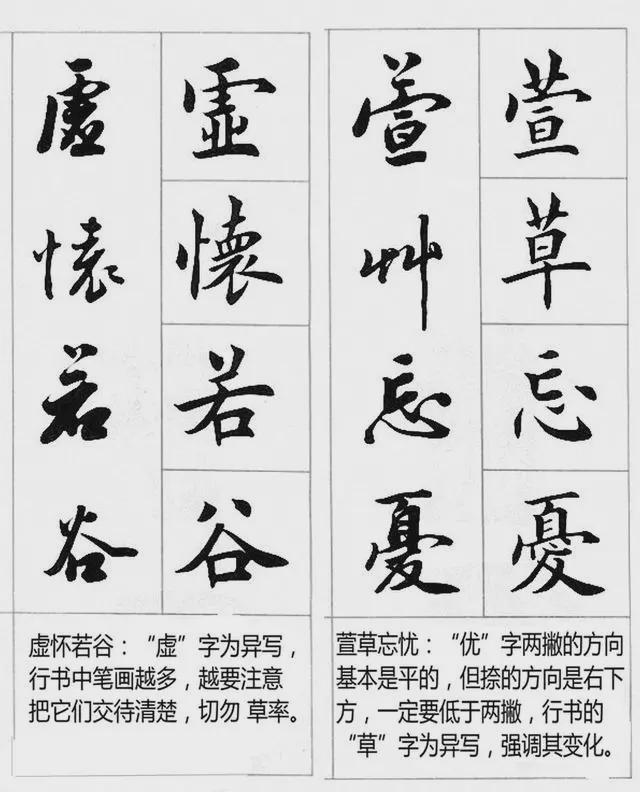 萱草忘憂
萱艸忘憂
虛懷若谷
虛懷若谷
虚怀若谷：“虚”字为异写，
行书中笔画越多，越要注意
把它们交待清楚，切勿 草率。
萱草忘忧：“优”字两撇的方向
基本是平的，但捺的方向是右下
方，一定要低于两撇，行书的
“草”字为异写，强调其变化。